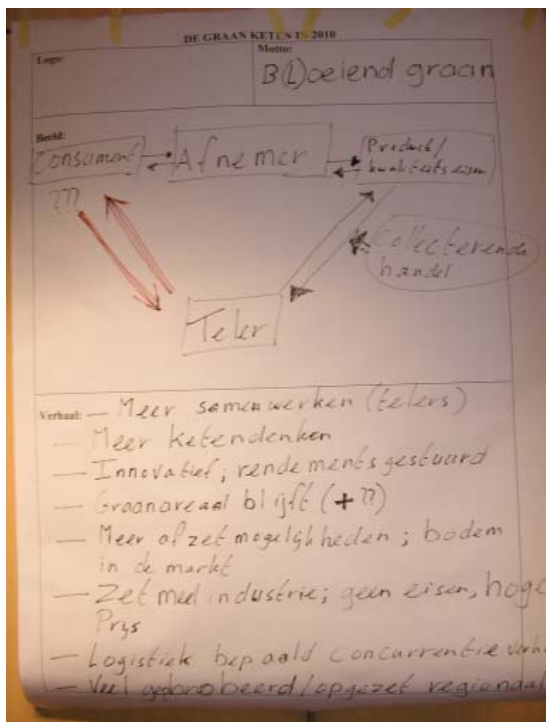 DE GRAAN KETEN IN 2010
Logo:
Motto:
B(L)oeiend graan
Beeld:
Consument
Afnemer
Product/
kwaliteits eisen
???
Collecterende
handel
Teler
Verhaal: — Meer samenwerken (telers)
— Meer ketendenken
— Innovatief; rendements gestuurd
— Graanareaal blijft (+??)
— Meer afzet mogelijkheden; bodem
in de markt
— Zetmeel industrie; geen eisen, hoge
Prijs
— Logistiek bepaald concurrentie verh
— Veel geprobeerd/opgezet regionaal